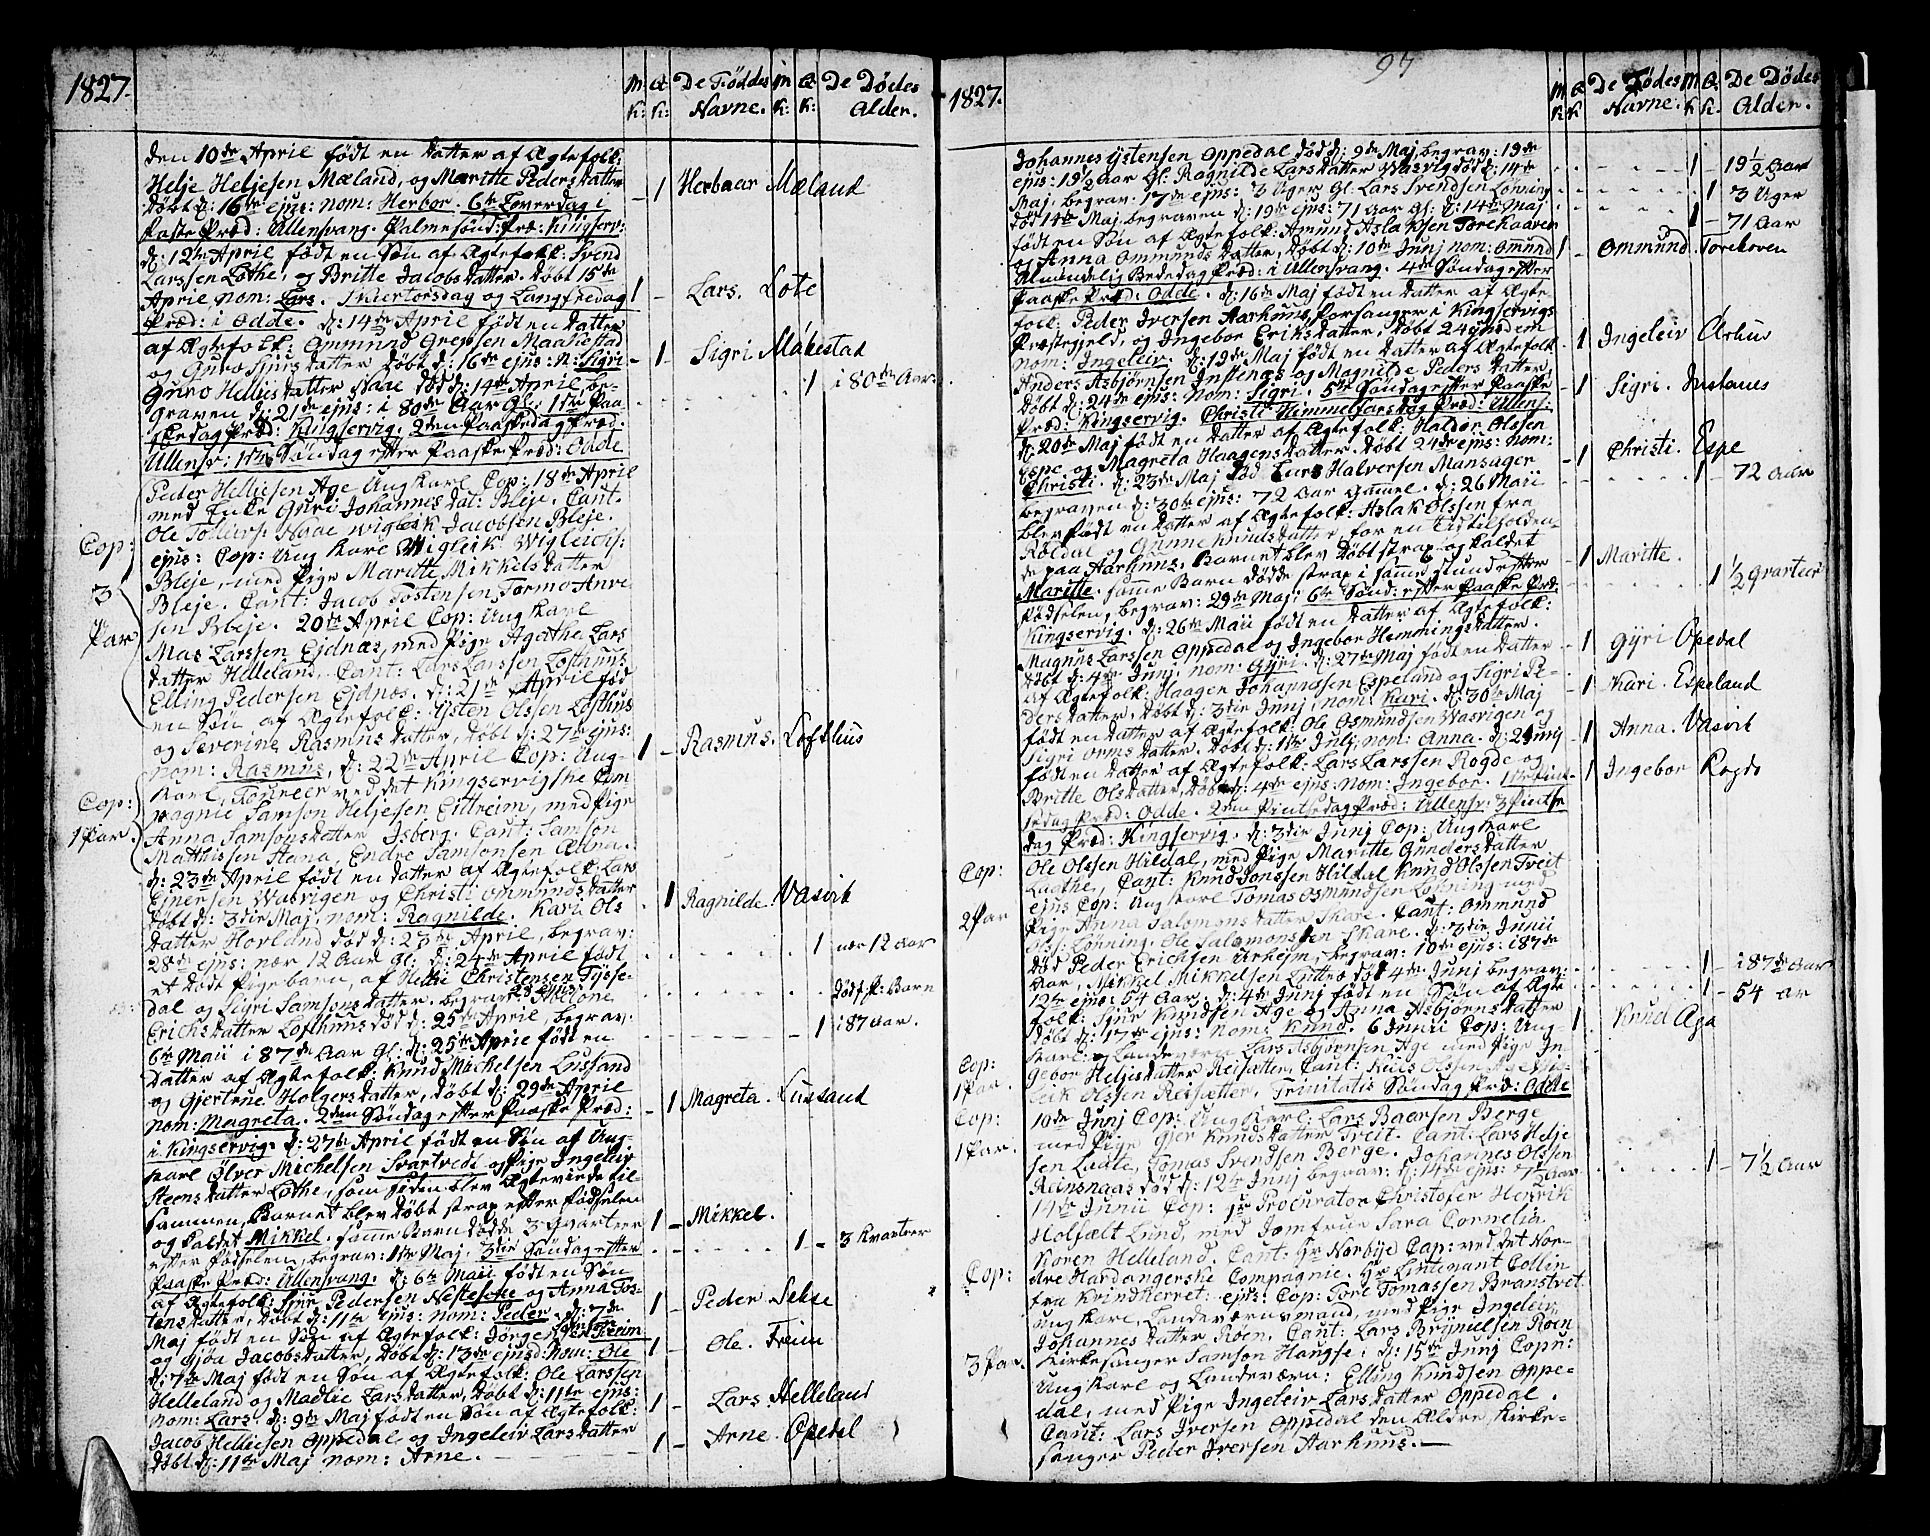 1827.
M K:
Q K:
De Føddes Navne.
M K:
Q K:
De Dødes Alder.
den 10de April født en Datter af Ægtefolk:
Helje Heljesen Mæland, og Maritte Peders Datter
Døbt d: 16de ejus: nom: Herbor. 6te Løverdag i
Faste Præd: Ullensvang. Palmesønd: Præ: Kingserv:
d: 12te April født en Søn af Ægtefolk: Svend
Larssen Lothe, og Britte Jacobs Datter. Døbt 15de
April nom: Lars. Skiertorsdag og Langfredag
Præd: i Odde. d: 14de April født en Datter
af Ægtefolk: Ommund Gregsen Maakestad
og Guro Sjurs Datter Døbt d: 16de ejus: N: Sigri
Guro Hellies Datter Naae død d: 14de April be-
graven d: 21de ejus: i 80de Aar Gl: 1ste Paa
skedag Præd: Kingservig. 2den Paaskedag Præd:
Ullensv: 1ste Søndag efter Paaske Præd: Odde
Peder Helliesen Age Ung Karl Cop: 18de April
med Enke Guri Johannes Dat: Bleje. Caut.
Ole Tollefs: Naae Wigleik Jacobsen Bleje.
ejus: Cop: Ung Karl Wigleik Wigleichs:
Bleje, med Pige Maritte Mikkels Datter
Bleje. Caut: Jacob Tostensen, Tormo Anve
sen Bleje. 20de April Cop: Ung Karl
Mas Larssen Ejdnæs, med Pige Agathe Lars
Datter Helleland. Caut: Lars Larssen Lofthuus
Elling Pedersen Eidnæs. d: 21de April fød
en Søn af Ægtefolk: Ysten Olssen Lofthus
og Severine Rasmus Datter, Døbt d: 27de ejus:
nom: Rasmus, d: 22de April Cop: Ung-
Karl, Foureer ved det Kingservigske Com
pagnie Samson Heljesen Eittreim, med Pige
Anna Samsons Datter Isberg. Caut: Samson
Mathissen Aana, Endre Samsonsen Ædna.
d: 23de April født en Datter af Ægtefolk: Lars
Ejnersen Wasvigen og Christi Ommunds Datter
Døbt d: 3die Maj, nom: Ragnilde. Kari Ols
Datter Hovland død d: 23de April, begrav:
28de ejus: nær 12 Aar gl: d: 24de April født
et Dødt Pigebarn, af Hellie Christensen Tysse-
dal og Sigri Samsons Datter. begrav: 28 ejus: Hellone
Erichs Datter Lofthuus død d: 25de April, begrav:
6te Maii i 87de Aar gl: d: 25de April født en
Datter af Ægtefolk: Knud Michelsen Lussand
og Gjertene Holgers Datter, Døbt d: 29de April
nom: Magreta. 2den Søndag efter Paaske Præd:
i Kingservig. d: 27de April født en Søn af Ung-
karl Ølver Michelsen Svartvedt og Pige Ingeleiv
Steens Datter Lothe, som siden blev Ægteviede til-
sammen, Barnet blev Døbt strax efter Fødselen
og Kaldet Mikkel. samme Barn Døde 3 Qvarteer
efter Fødselen, begrav: 1ste Maj. 3die Søndag efter
Paaske Præd: Ullensvang. d: 6te Maii født en Søn
af Ægtefolk: Sjur Pedersen Nestesche og Anna Tos-
tens Datter, Døbt d: 11te ejus: nom: Peder. d: 7de
Maj født en Søn af Ægtefolk: Jørgen Samson: Freim
og Gjøa Jacobs Datter, Døbt d: 13de ejusd: Nom: Ole
d: 7de Maj født en Søn af Ægtefolk: Ole Larssen
Helleland og Madlie Lars Datter, Døbt d: 11te ejus:
nom: Lars. d: 9de Maj født en Søn af Ægtefolk:
Jacob Helliesen Oppedal, og Ingeleiv Lars Datter
Døbt d: 11te Maj nom: Arne.
Cop:
3
Par
Cop:
1 Par.
1 Herbaar Mæland
1 Lars. Lote
1 Sigri Måkestad
1 i 80de Aar.
1 Rasmus. Lofthus
1 Ragnilde Vasvik
1 nær 12 Aar
Dødf. P. Barn
1 i 87 Aar.
1 Magreta. Lussand
1 Mikkel.
1 3 Kvarteer
1 Peder Sekse
1 Ole. Freim
1 Lars Helleland
1 Arne. Opedal
1827.
97
M K
Q K
De Fødes Navne.
M K
Q K:
De Dødes Alder.
Johannes Ystensen Oppedal død d: 9de Maj, begrav: 19de
ejus: 19 1/2 Aar Gl: Ragnilde Lars Datter Wasvig død d: 14de
Maj, begrav: 17de ejus: 3 Uger Gl: Lars Svendsen Lønning
død 14de Maj begraven d: 19de ejus: 71 Aar Gl: d: 14de Maj
født en Søn af Ægtefolk: Amund Aslaksen Torehaaven
og Anna Ommunds Datter, Døbt d: 10de Junj nom: Omund
Almindelig Bededag Præd: i Ullensvang. 4de Søndag efter
Paaske Præd: Odde. d: 16de Maj født en Datter af Ægte
folk: Peder Iversen Aarhuus, Forsanger i Kingservigs
Præstegjeld, og Ingebor Eriks Datter, Døbt 24 ejusdem
nom: Ingeleiv. d: 19de Maj født en Datter af Ægtefolk
Anders Asbjørnsen Instenæs og Magnilde Peders Datter,
Døbt d: 24de ejus: nom: Sigri. 5te Søndag efter Paaske
Præd: Kingservig. Christi Himmelfartsdag Præd: Ullens:
d: 20de Maj født en Datter af Ægtefolk: Haldor Olssen
Espe, og Magreta Haagens Datter. Døbt 24de ejus: Nom:
Christi. d: 23de Maj død Lars Halversen Mansager
begraven d: 30te ejus: 72 Aar Gammel. d: 26 Maii
blev født en Datter af Ægtefolk: Aslak Olssen fra
Røldal og Gunne Knuds Datter, for en Tid tilholden-
de paa Aarhuus. Barnet blev Døbt strax og Kaldet
Maritte. samme Barn Døde strax i samme stund efter
Fødselen, begrav: 29de Maj: 6te Sønd: efter Paaske Præd:
Kingservig. d: 26de Maii født en Datter af Ægtefolk:
Magnus Larssen Oppedal og Ingebor Hemmings Datter.
Døbt d: 4de Junj, nom: Gyri. d: 27de Maj født en Datter
af Ægtefolk: Haagen Johannessen Espeland og Sigri Pe-
ders Datter, Døbt d: 3die Junj, nom: Kari. d: 30te Maj
født en Datter af Ægtefolk: Ole Osmundsen Wasvigen og
Sigri Orms Datter. Døbt d: 1ste Julj, nom: Anna. d: 2 Junij
født en Datter af Ægtefolk: Lars Larssen Rogde og
Britte Ols Datter, Døbt d: 4de ejus: Nom: Ingebor. 1ste Pint-
sedag Præd: Odde. 2den Pintsedag Præd: Ullensv: 3 Pintse
dag Præd: Kingservig. d: 3die Junj Cop: Ung Karl
Ole Olssen Hildal, med Pige Maritte Gunders Datter
Laathe, Caut: Knud Jonssen Hildal Knud Olssen Treit
ejus Cop: Ung Karl Tomas Osmundsen Lønning med
Pige Anna Salomons Datter Skare. Caut: Ommund
Ols: Lønning. Ole Salomonssen Skare. d: 3die Junii
død Peder Erichsen Urheim, begrav: 10de ejus: i 87de
Aar, Mikkel Mikkelsen Luttro død 4de Junj begrav:
12te ejus: 54 Aar. d: 4de Junj født en Søn af Ægte
folk: Sjur Knudsen Age og Anna Asbjørns Datter
Døbt d: 17de ejus: Nom: Knud. 6 Junii Cop: Ung-
Karl: og Landeværn Lars Asbjørnsen Age med Pige In
gebor Heljes Datter Reisætter, Caut: Nils Olssen Age Vig-
leik Olssen Reisætter. Trinitatis Søndag Præd: Odde
10de Junj Cop: Ungkarl: Lars Baarsen Berge
med Pige Gjer Knuds Datter Treit. Caut: Lars Helje
sen Ladte, Tomas Svendsen Berge. Johannes Olssen
Reinsnaas død d: 12te Junj begrav: d: 14de ejus: 7 1/2 Aar
14de Junii Cop: Hr Procurator Christofer Henrik
Holfælt Lund, med Jomfrue Sara Cornelia
Koren Helleland. Caut: Hr Norbye Cap: ved det Nor-
dre Hardangerske Compagnie. Hr Lieutenant Collin
fra Kvindherret: ejus: Cop: Tore Tomassen Branstvet
Ung Karl, Landeværnsmand, med Pige Ingeleiv
Johannes Datter Røen, Caut: Lars Brynielsen Røen
Kirkesanger Samson Haugse: d: 15de Junj Copu:
Ung Karl og Landeværn: Elling Knudsen Oppe-
dal, med Pige Ingeleiv Lars Datter Oppedal.
Caut: Lars Iversen Oppedal den Ældre, Kirke-
sanger Peder Iversen Aarhuus.
Cop:
2 Par
Cop:
1 Par.
Cop:
1 Par.
Cop:
3 Par.
1 19 1/2 Aar
1 3 Uger
1 71 Aar
1 Ommund. Torehoven
1 Ingeleiv Århus
1 Sigri. Instanes
1 Christi. Espe
1 72 Aar
1 Maritte.
1 1/2 Qvarteer
1 Gyri Opedal
1 Kari. Espeland
1 Anna. Vasvik
1 Ingebor Rogde
1 i 87de Aar
1 54 Ar
1 Knud Aga
1 7 1/2 Aar